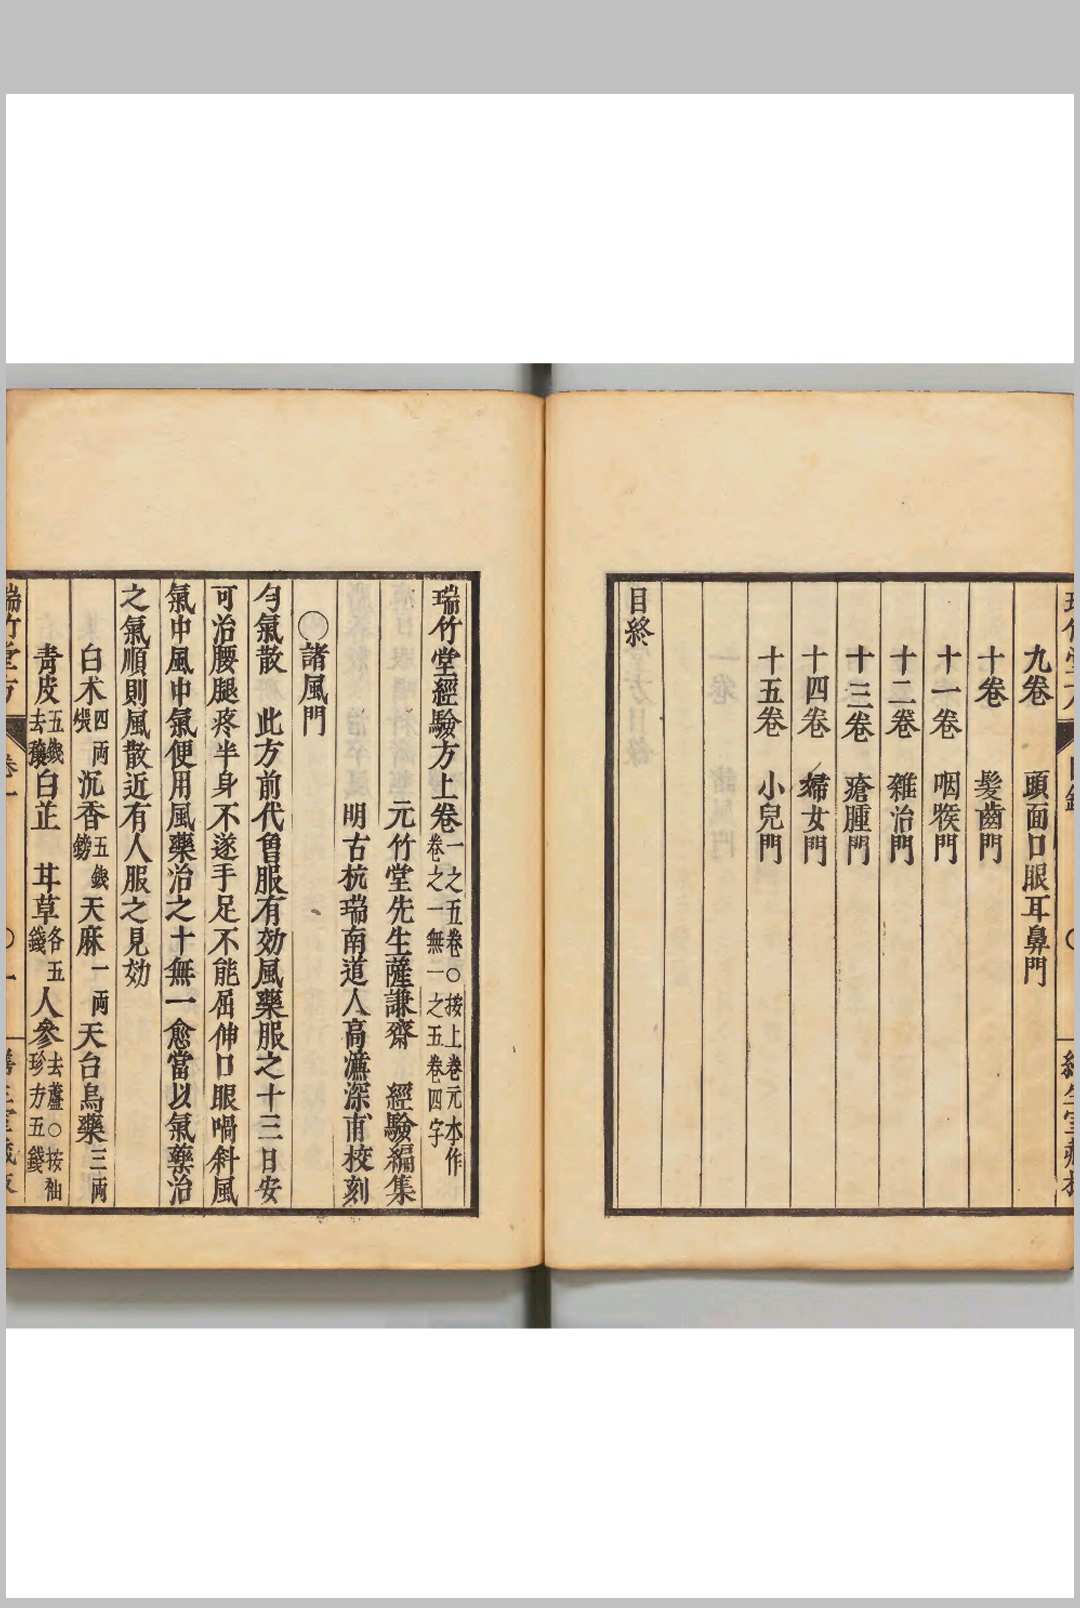 九卷　頭面口眼耳鼻門
十卷　髮齒門
十一卷　咽喉門
十二卷　雜治門
十三卷　瘡腫門
十四卷　婦女門
十五卷　小兒門
目終
瑞竹堂經驗方上卷一之五卷○按上卷元本作卷之一無一之五卷四字
元竹堂先生薩謙齋　經驗編集
明古杭瑞南道人高濂深甫校刻
○諸風門
勻氣散　此方前代曾服有効風藥服之十三日安
可治腰腿疼半身不遂手足不能屈伸口眼喎斜風
氣中風中氣便用風藥治之十無一愈當以氣藥治
之氣順則風散近有人服之見効
白术四兩煨沉香五錢鎊天麻一兩天台烏藥三兩
青皮五錢去穰白芷　甘草各五錢人參去蘆○按袖珍方五錢
瑞竹堂方　卷一　○　一